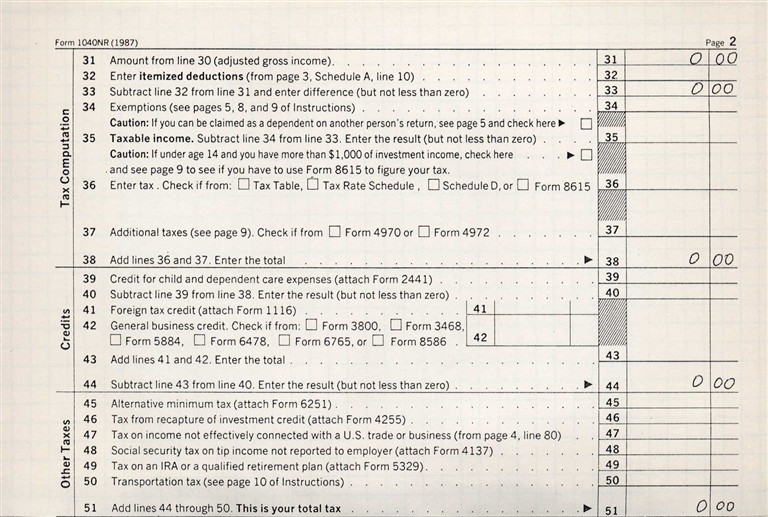 Form 1040NR (1987) Page 2
Tax Computation
31 Amount from line 30 (adjusted gross income). 31 0 00
32 Enter itemized deductions (from page 3, Schedule A, line 10) 32
33 Subtract line 32 from line 31 and enter difference (but not less than zero) 33 0 00
34 Exemptions (see pages 5, 8, and 9 of Instructions) 34
Caution: If you can be claimed as a dependent on another person's return, see page 5 and check here ▶ ☐
35 Taxable income. Subtract line 34 from line 33. Enter the result (but not less than zero) 35
Caution: If under age 14 and you have more than $1,000 of investment income, check here ▶ ☐
and see page 9 to see if you have to use Form 8615 to figure your tax.
36 Enter tax. Check if from: ☐ Tax Table, ☐ Tax Rate Schedule, ☐ Schedule D, or ☐ Form 8615 36
37 Additional taxes (see page 9). Check if from ☐ Form 4970 or ☐ Form 4972 37
38 Add lines 36 and 37. Enter the total ▶ 38 0 00
Credits
39 Credit for child and dependent care expenses (attach Form 2441) 39
40 Subtract line 39 from line 38. Enter the result (but not less than zero) 40
41 Foreign tax credit (attach Form 1116) 41
42 General business credit. Check if from: ☐ Form 3800, ☐ Form 3468,
☐ Form 5884, ☐ Form 6478, ☐ Form 6765, or ☐ Form 8586 42
43 Add lines 41 and 42. Enter the total 43
44 Subtract line 43 from line 40. Enter the result (but not less than zero) ▶ 44 0 00
Other Taxes
45 Alternative minimum tax (attach Form 6251) 45
46 Tax from recapture of investment credit (attach Form 4255) 46
47 Tax on income not effectively connected with a U.S. trade or business (from page 4, line 80) 47
48 Social security tax on tip income not reported to employer (attach Form 4137) 48
49 Tax on an IRA or a qualified retirement plan (attach Form 5329). 49
50 Transportation tax (see page 10 of Instructions) 50
51 Add lines 44 through 50. This is your total tax ▶ 51 0 00